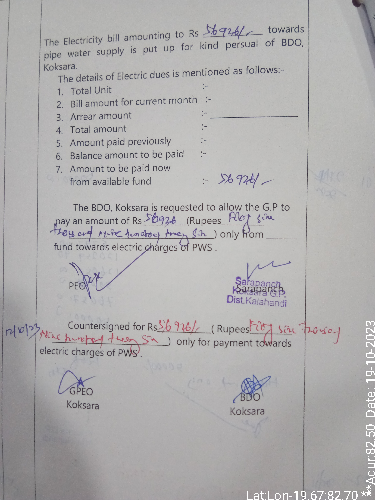 The Electricity bill amounting to Rs 56926/- towards
pipe water supply is put up for kind persual of BDO,
Koksara.
The details of Electric dues is mentioned as follows:-
1. Total Unit :-
2. Bill amount for current month :-
3. Arrear amount :-
4. Total amount :-
5. Amount paid previously :-
6. Balance amount to be paid :-
7. Amount to be paid now
from available fund :- 56926/-
The BDO, Koksara is requested to allow the G.P to
pay an amount of Rs 56926 (Rupees
) only from
fund towards electric charges of PWS .
PEO
Sarapanch
Sarapanch
Koksara G.P.
Dist.Kalahandi
Countersigned for Rs 56926/- (Rupees
) only for payment towards
electric charges of PWS .
GPEO
Koksara
BDO
Koksara
Lat Lon-19.67:82.70 **Acur:82.50 Date: 19-10-2023